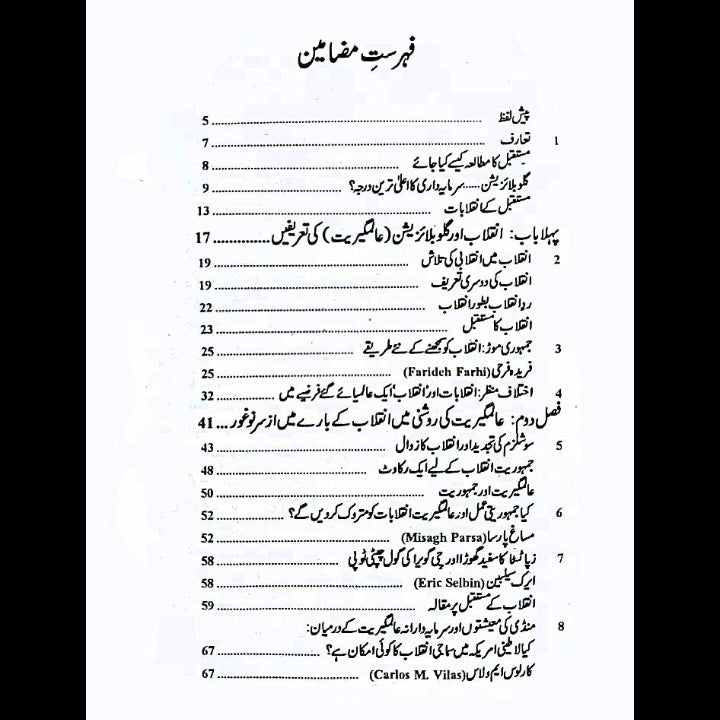 فہرستِ مضامین
پیش لفظ ........ 5
1 تعارف ........ 7
مستقبل کا مطالعہ کیسے کیا جائے ........ 8
گلوبلائزیشن ..... سرمایہ داری کا اعلیٰ ترین درجہ؟ ........ 9
مستقبل کے انقلابات ........ 13
پہلا باب: انقلاب اور گلوبلائزیشن (عالمگیریت) کی تعریفیں ........ 17
2 انقلاب میں انقلابی کی تلاش ........ 19
انقلاب کی دوسری تعریف ........ 19
ردِ انقلاب بطور انقلاب ........ 22
انقلاب کا مستقبل ........ 23
3 جمہوری موڑ: انقلاب کو سمجھنے کے نئے طریقے ........ 25
فریدہ فرحی (Farideh Farhi) ........ 25
4 اختلافِ منظر: انقلابات اور 'انقلاب' ایک عالمیائے گئے فرنیے میں ........ 32
فصل دوم: عالمگیریت کی روشنی میں انقلاب کے بارے میں از سرِ نو غور ... 41
5 سوشلزم کی تجدید اور انقلاب کا زوال ........ 43
جمہوریت انقلاب کے لیے ایک رکاوٹ ........ 48
عالمگیریت اور جمہوریت ........ 50
6 کیا جمہوریتی عمل اور عالمگیریت انقلابات کو متروک کر دیں گے؟ ........ 52
مساغ پارسا (Misagh Parsa) ........ 52
7 زپاٹسٹا کا سفید گھوڑا اور چی گویرا کی گول چپٹی ٹوپی ........ 58
ایرک سیلبین (Eric Selbin) ........ 58
انقلاب کے مستقبل پر مقالہ ........ 59
8 منڈی کی معیشتوں اور سرمایہ دارانہ عالمگیریت کے درمیان:
کیا لاطینی امریکہ میں سماجی انقلاب کا کوئی امکان ہے؟ ........ 67
کارلوس ایم ولاس (Carlos M. Vilas) ........ 67